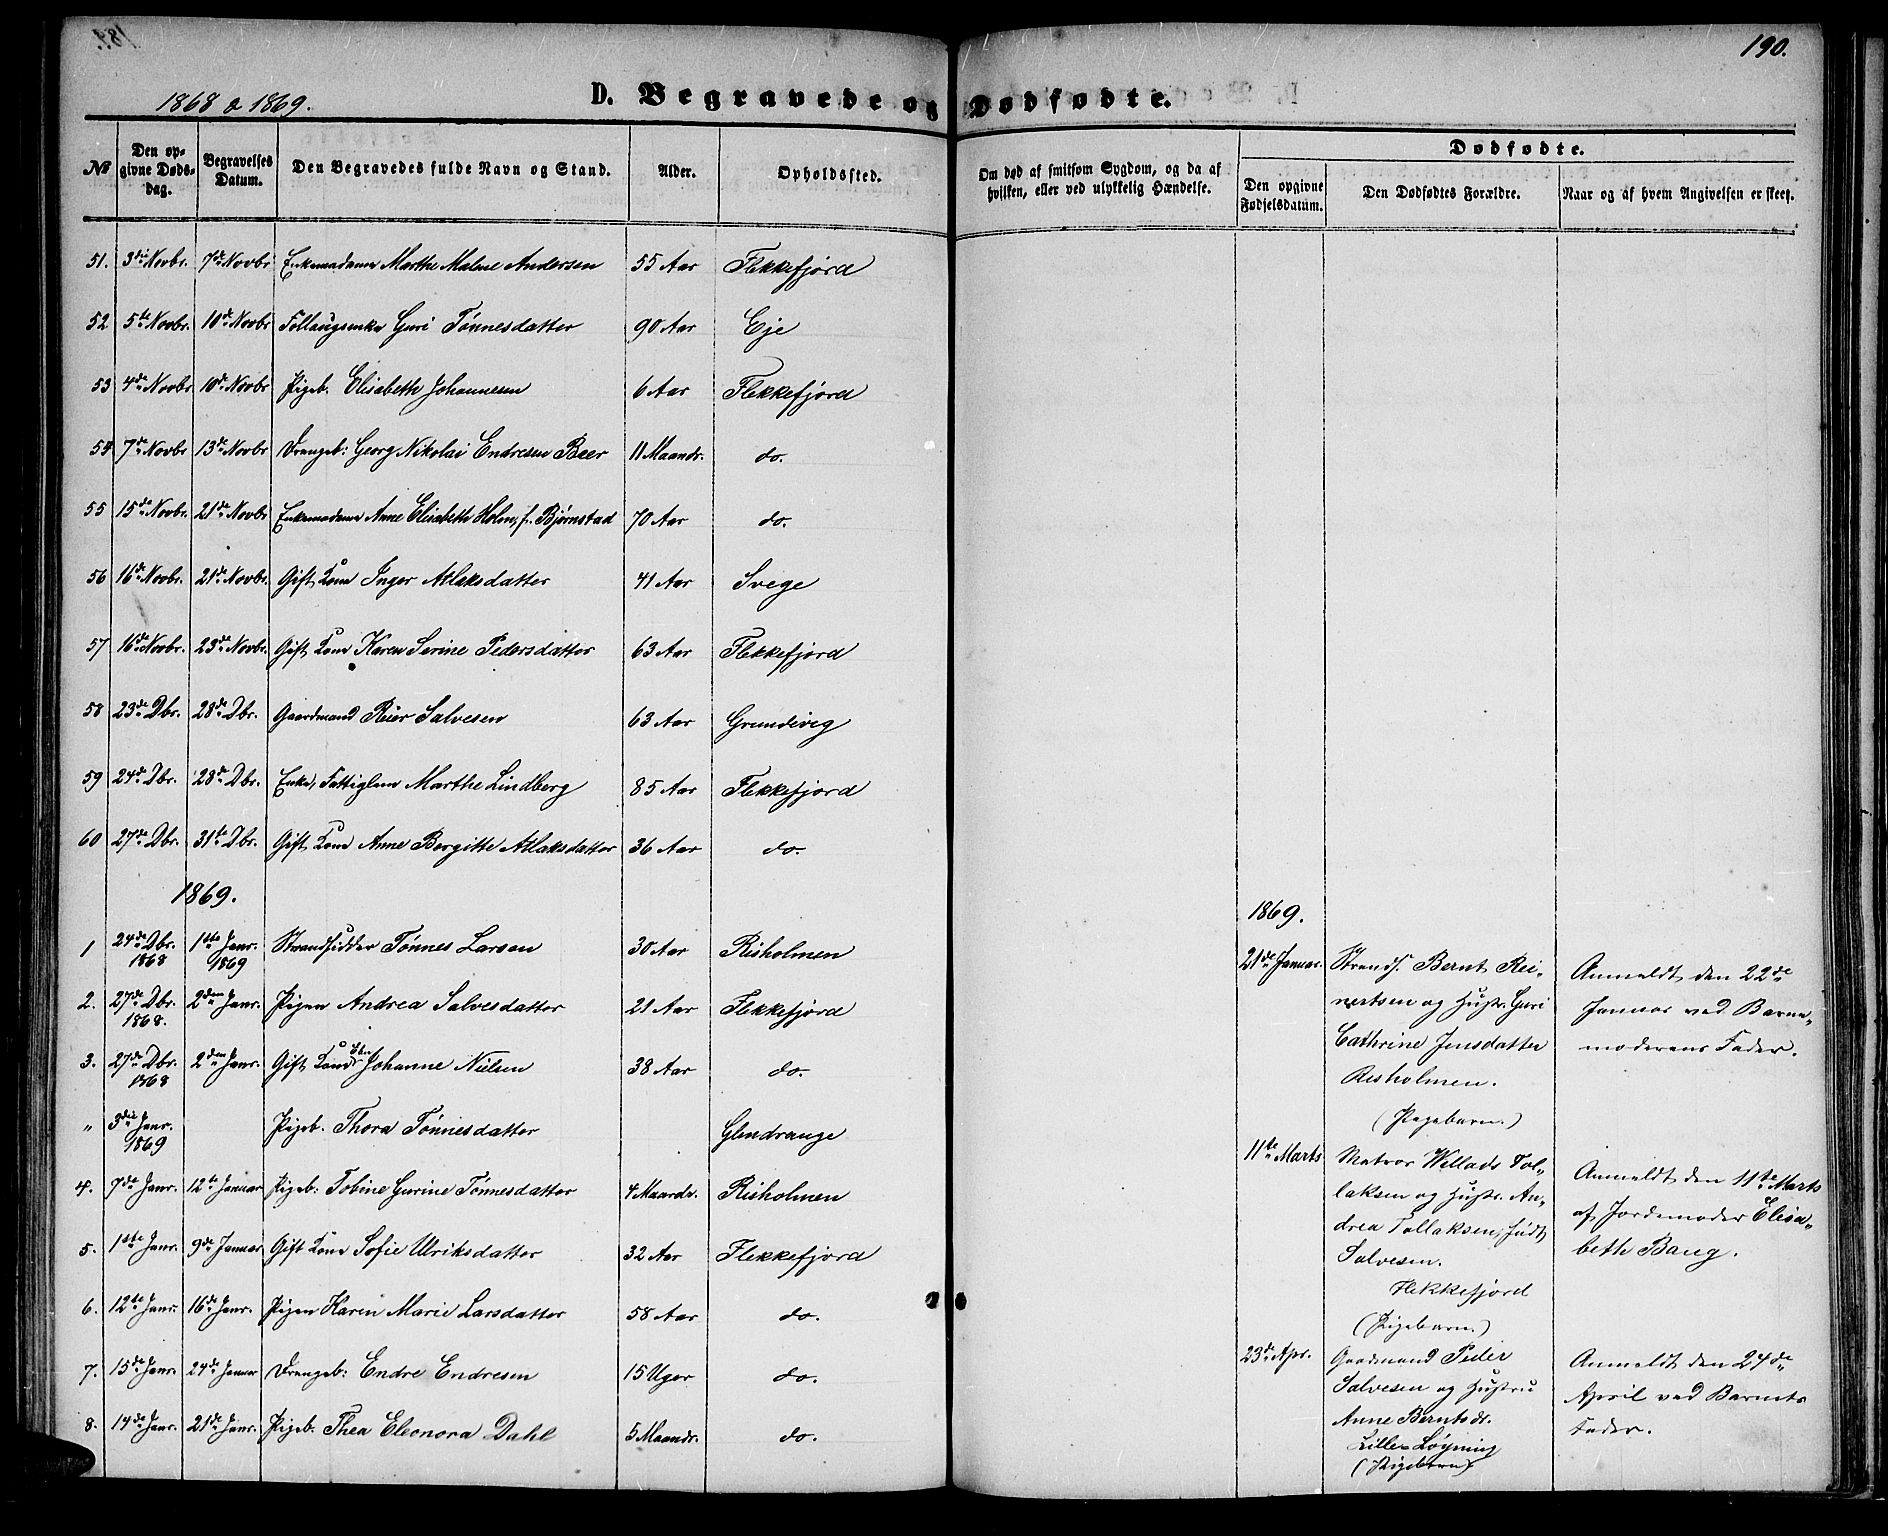 190.
1868 & 1869.
D. Begravede og Dødfødte.
No
Den opgivne Dødsdag.
Begravelses Datum.
Den Begravedes fulde Navn og Stand.
Alder.
Opholdssted.
Om død af smitsom Sygdom, og da af hvilken, eller ved ulykkelig Hændelse.
Dødfødte.
Den opgivne Fødselsdatum.
Den Dødfødtes Forældre.
Naar og af hvem Angivelsen er skeet.
51. 3die Novbr. 7de Novbr Enkemadame Marthe Malene Andersen 55 Aar Flekkefjord
52 5te Novbr. 10de Novbr Follaugsenke Guri Tønnesdatter 90 Aar Eje
53 4de Novbr 10de Novbr Pigeb. Elisabeth Johannesen 6 Aar Flekkefjord
54 7de Novbr 13de Novbr Drengeb: Georg Nikolai Endresen Beer 11 Maandr. do.
55 15de Novbr. 21de Novbr Enkemadame Anne Elisabeth Holm, f. Bjørnstad 70 Aar do.
56 16de Novbr. 21de Novbr. Gift Kone Inger Atlaksdatter 41 Aar Svege
57 16de Novbr. 23de Novbr. Gift Kone Karen Serine Pedersdatter 63 Aar Flekkefjord
58 23de Dbr. 28de Dbr. Gaardmand Reier Salvesen 63 Aar Grundevig
59 24de Dbr. 28de Dbr. Enke, Fattiglem Marthe Lindberg 85 Aar Flekkefjord
60 27de Dbr. 31te Dbr. Gift Kone Anne Borgitte Atlaksdatter 36 Aar do.
1869.
1 24de Dbr. 1868 1ste Janr. 1869 Strandsidder Tønnes Larsen 30 Aar Risholmen
2. 27de Dbr. 1868. 2den Janr. Pigen Andrea Salvesdatter 21 Aar Flekkefjord
3. 27de Dbr. 1868 2den Janr. Gift Kone Johanne Nielsen 38 Aar do.
" 3die Janr. 1869 Pigeb. Thora Tønnesdatter Glendrange
4. 7de Janr. 12te Januar Pigeb: Tobine Gurine Tønnesdatter 4 Maandr. Risholmen
5. 1ste Janr. 9de Januar Gift Kone Sofie Ulriksdatter 32 Aar Flekkefjord
6. 12te Janr. 16de Janr. Pigen Karen Marie Larsdatter 58 Aar do.
7. 15de Janr. 24de Januar Drengeb: Endre Endresen 15 Uger do.
8. 14de Janr. 21de Janr. Pigeb. Thea Eleonora Dahl 5 Maandr. do.
1869.
21de Januar.
Strands. Bernt Rei-
nertsen og Hustr. Guri
Cathrine Jensdatter
Risholmen.
(Pigebarn.)
Anmeldt den 22de
Januar ved Barne-
moderens Fader.
11te Marts
Matros Willads Tol-
laksen og Hustr. An-
drea Tollaksen, født
Salvesen.
Flekkefjord
(Pigebarn.)
Anmeldt den 11te Marts
af Jordemoder Elisa-
beth Bang.
23de Apr.
Gaardmand Peder
Salvesen og Hustru
Anne Berntsdr.
Lille-Løgning
(Pigebarn)
Anmeldt den 24de
April ved Barnets
Fader.